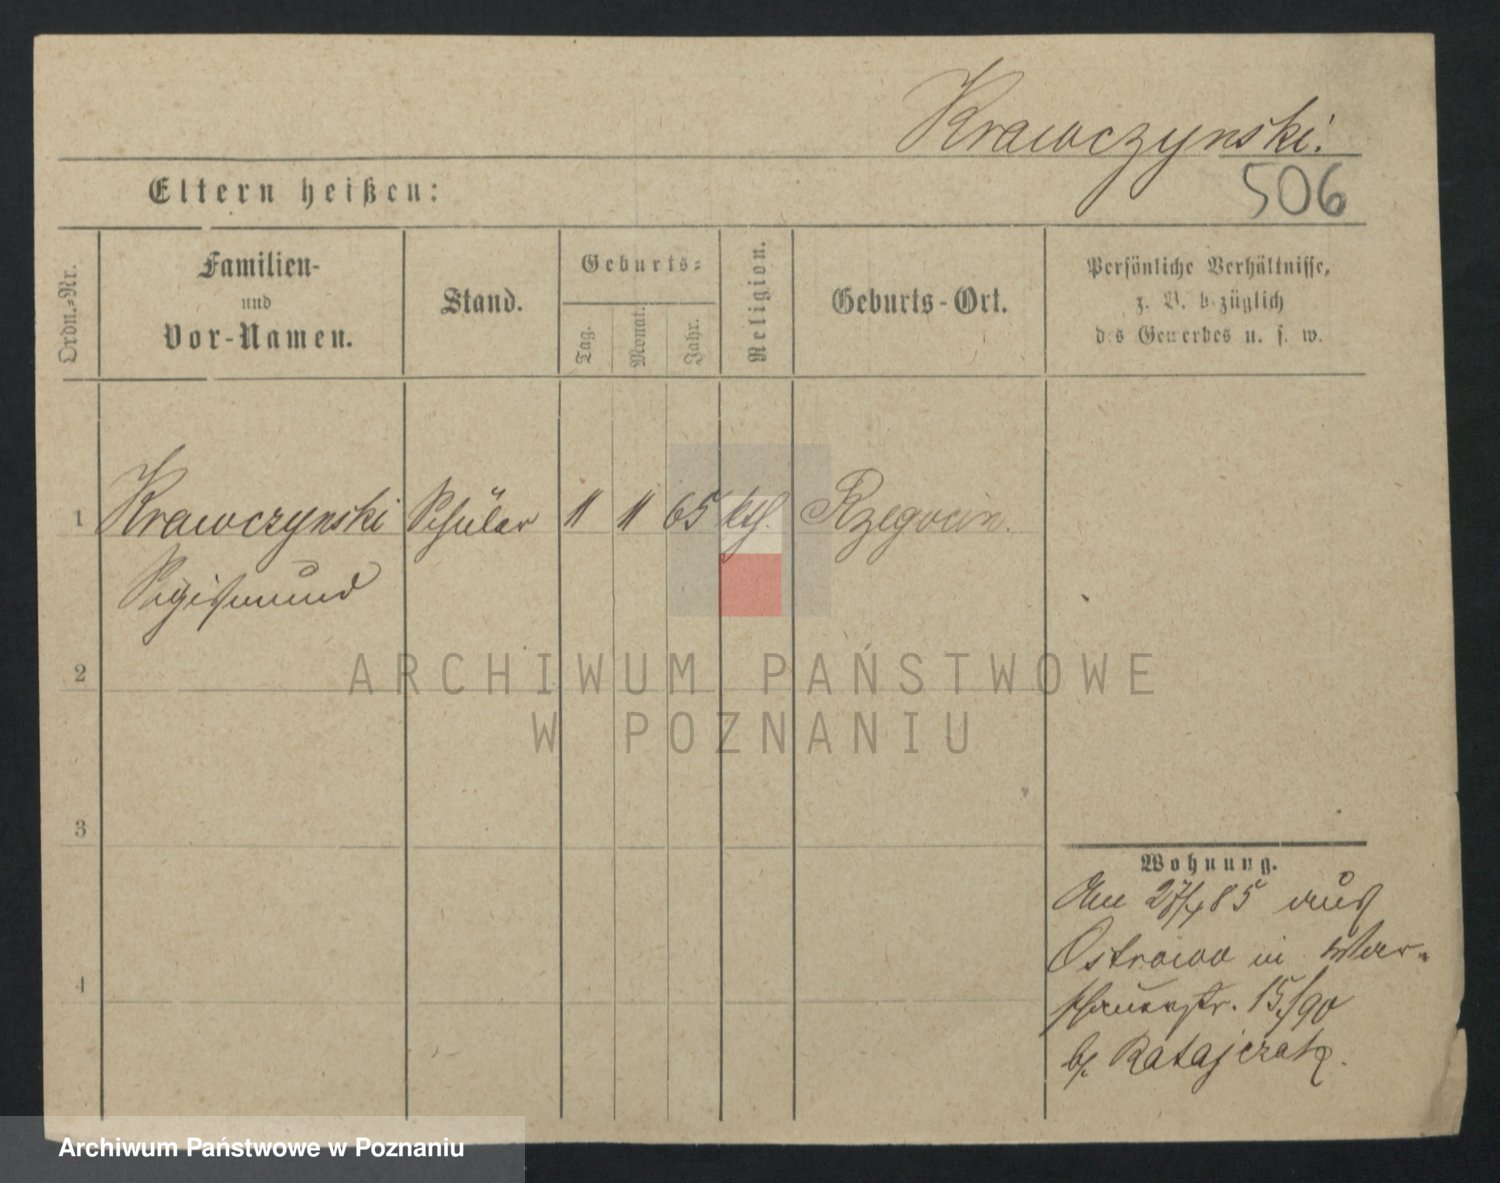 Krawczynski.
506
Eltern heißen:
Ordn.-Nr.
Familien-
und
Vor-Namen.
Stand.
Geburts-
Tag.
Monat.
Jahr.
Religion.
Geburts-Ort.
Persönliche Verhältnisse,
z. B. bezüglich
des Gewerbes u. s. w.
1 Krawczynski Schüler 11 11 65 kth. Rzegocin.
Sigismund
2
3
4
Wohnung.
Am 27/4 85 aus
Ostrowo in War-
schauerstr. 15/90
b/ Ratajczak.
ARCHIWUM PAŃSTWOWE
W POZNANIU
Archiwum Państwowe w Poznaniu